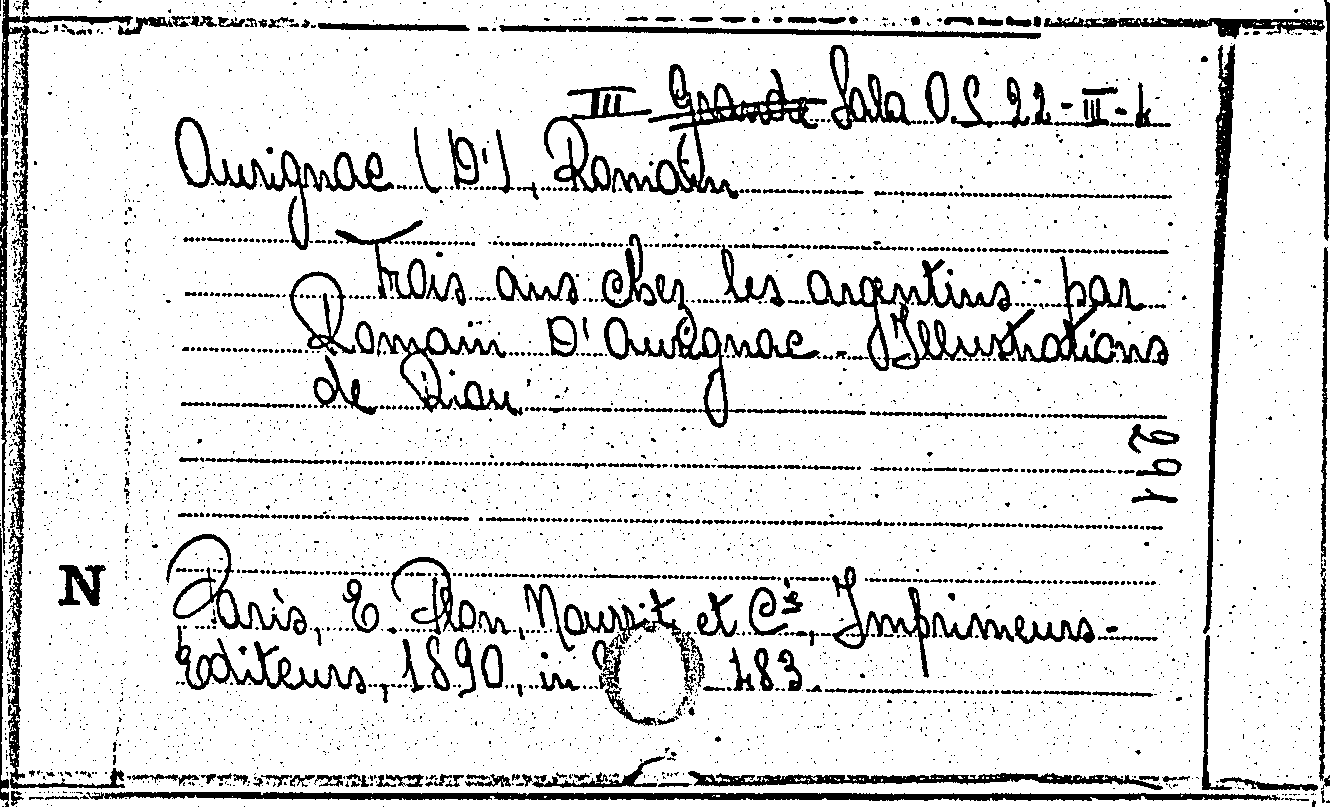 III Grande Sala O.S. 22-III-4
Aurignac (D'), Romain
Trois ans chez les argentins par
Romain D'Aurignac. Illustrations
de Riou
291
N
Paris, E. Plon, Nourrit et Cie, Imprimeurs-
Editeurs, 1890, in 483.